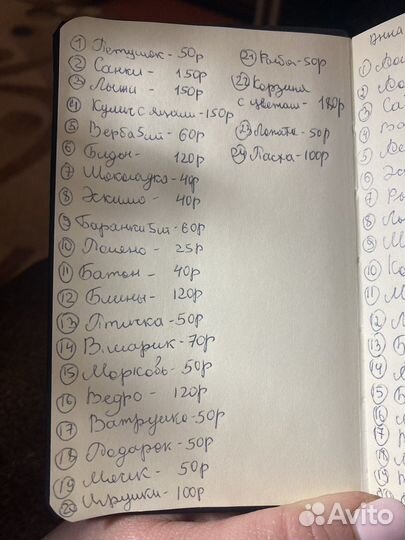 ① Петушок - 50р
② Санки - 150р
③ Лыжи - 150р
④ Кулич с яйцами - 150р
⑤ Верба 5шт - 60р
⑥ Бидон - 120р
⑦ Шоколадка - 40р
⑧ Эскимо - 40р
⑨ Баранки 5шт - 60р
⑩ Полено - 25р
⑪ Батон - 40р
⑫ Блины - 120р
⑬ Птичка - 50р
⑭ В.шарик - 70р
⑮ Морковь - 50р
⑯ Ведро - 120р
⑰ Ватрушка - 50р
⑱ Подарок - 50р
⑲ Мячик - 50р
⑳ Игрушки - 100р
㉑ Рыбы - 50р
㉒ Корзина
с цветами - 180р
㉓ Лопата - 50р
㉔ Пасха - 100р
Анна
①
②
③ Са
④
⑤
⑥ Эс
⑦
⑧
⑨
⑩ Ко
⑪
⑫
⑬
⑭
⑮
⑯
⑰
⑱
⑲
Avito